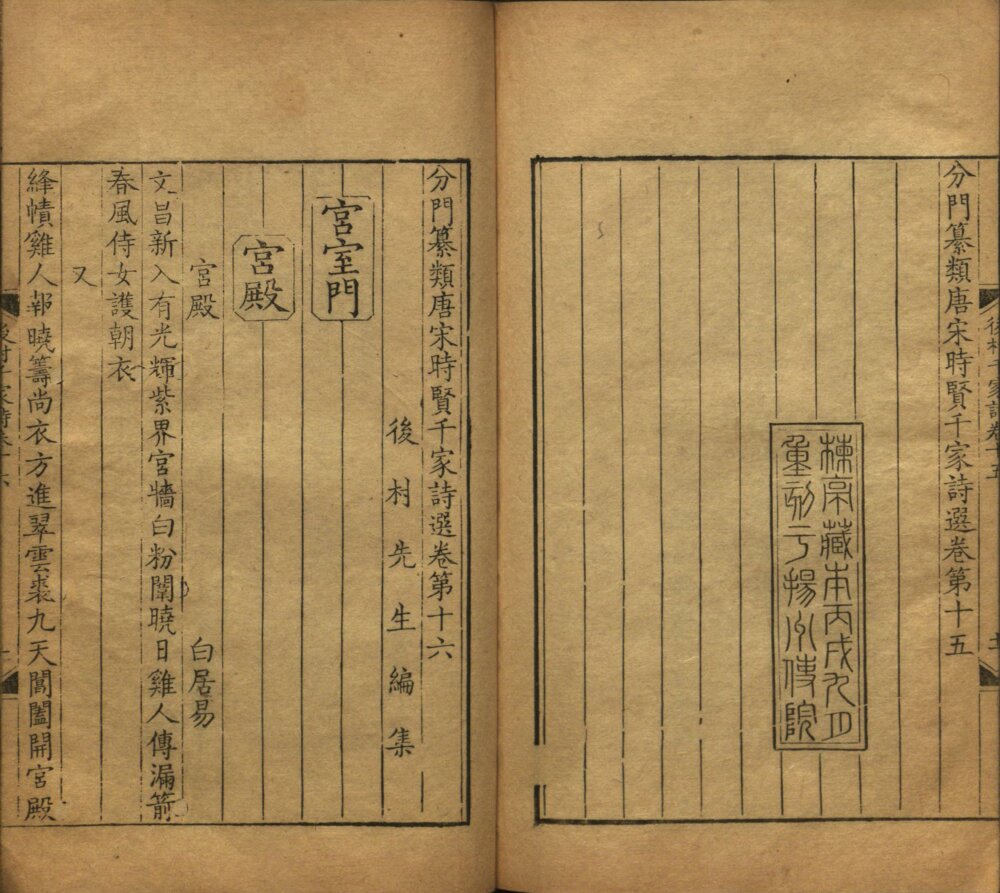 分門纂類唐宋時賢千家詩選卷第十五
楝亭藏本丙戌九月
重刻于揚州使院
分門纂類唐宋時賢千家詩選卷第十六
後村先生編集
宮室門
宮殿
宮殿 白居易
文昌新入有光輝紫界宮牆白粉闈曉日雞人傳漏箭
春風侍女護朝衣
又
絳幘雞人報曉籌尚衣方進翠雲裘九天閶闔開宮殿